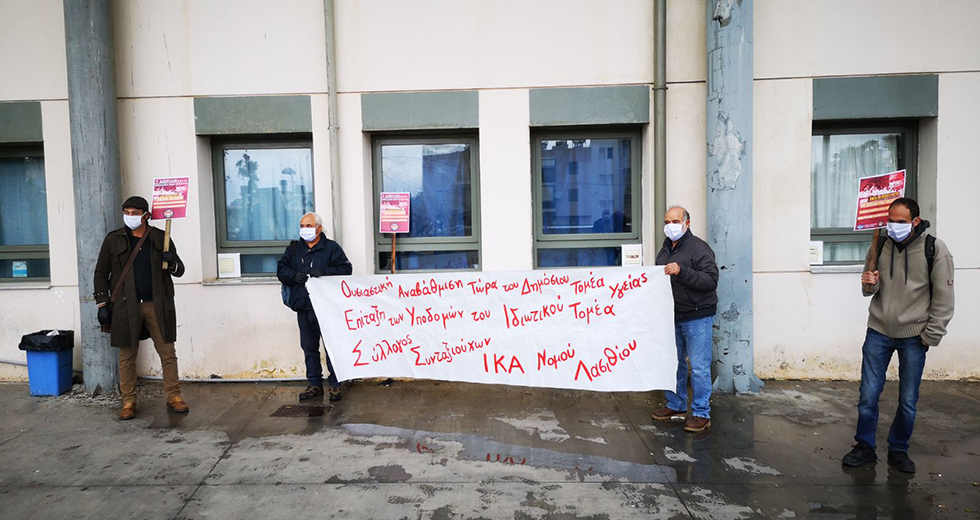 Ουσιαστική Αναβάθμιση Τώρα του Δημόσιου Τομέα Υγείας
Επίταξη των Υποδομών του Ιδιωτικού Τομέα
Σύλλογος Συνταξιούχων ΙΚΑ Νομού Λασιθίου